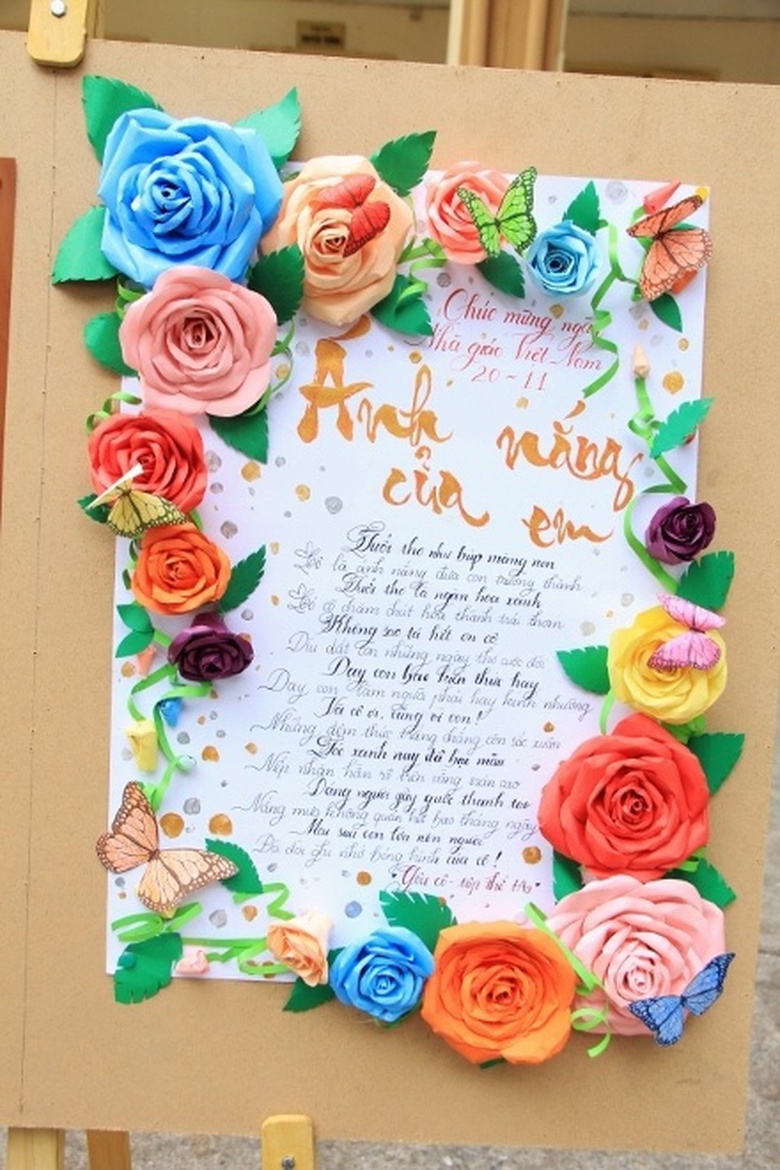 Chúc mừng ngày
Nhà giáo Việt Nam
20-11
Ánh nắng
của em
Tuổi thơ như búp măng non
Đó là ánh nắng đưa con trưởng thành
Tuổi thơ là ngàn hoa xanh
Đó cô chăm chút hóa thành trái thơm
Không sao tả hết ơn cô
Dìu dắt con những ngày thơ cuộc đời
Dạy con bao kiến thức hay
Dạy con làm người phải hay kính nhường
Tới cô ơi, cũng vì con!
Những đêm thức trắng chẳng còn sắc xuân
Tóc xanh nay đã bạc màu
Nếp nhăn hằn rõ trên vầng trán cao
Dáng người gầy guộc thanh tao
Nắng mưa không quản hề bao tháng ngày
Mai sau con lớn nên người
Đã đời ghi nhớ bóng hình của cô!
Yêu cô - tập thể